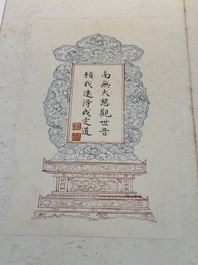 南無大慈觀世音
願我速得戒定道